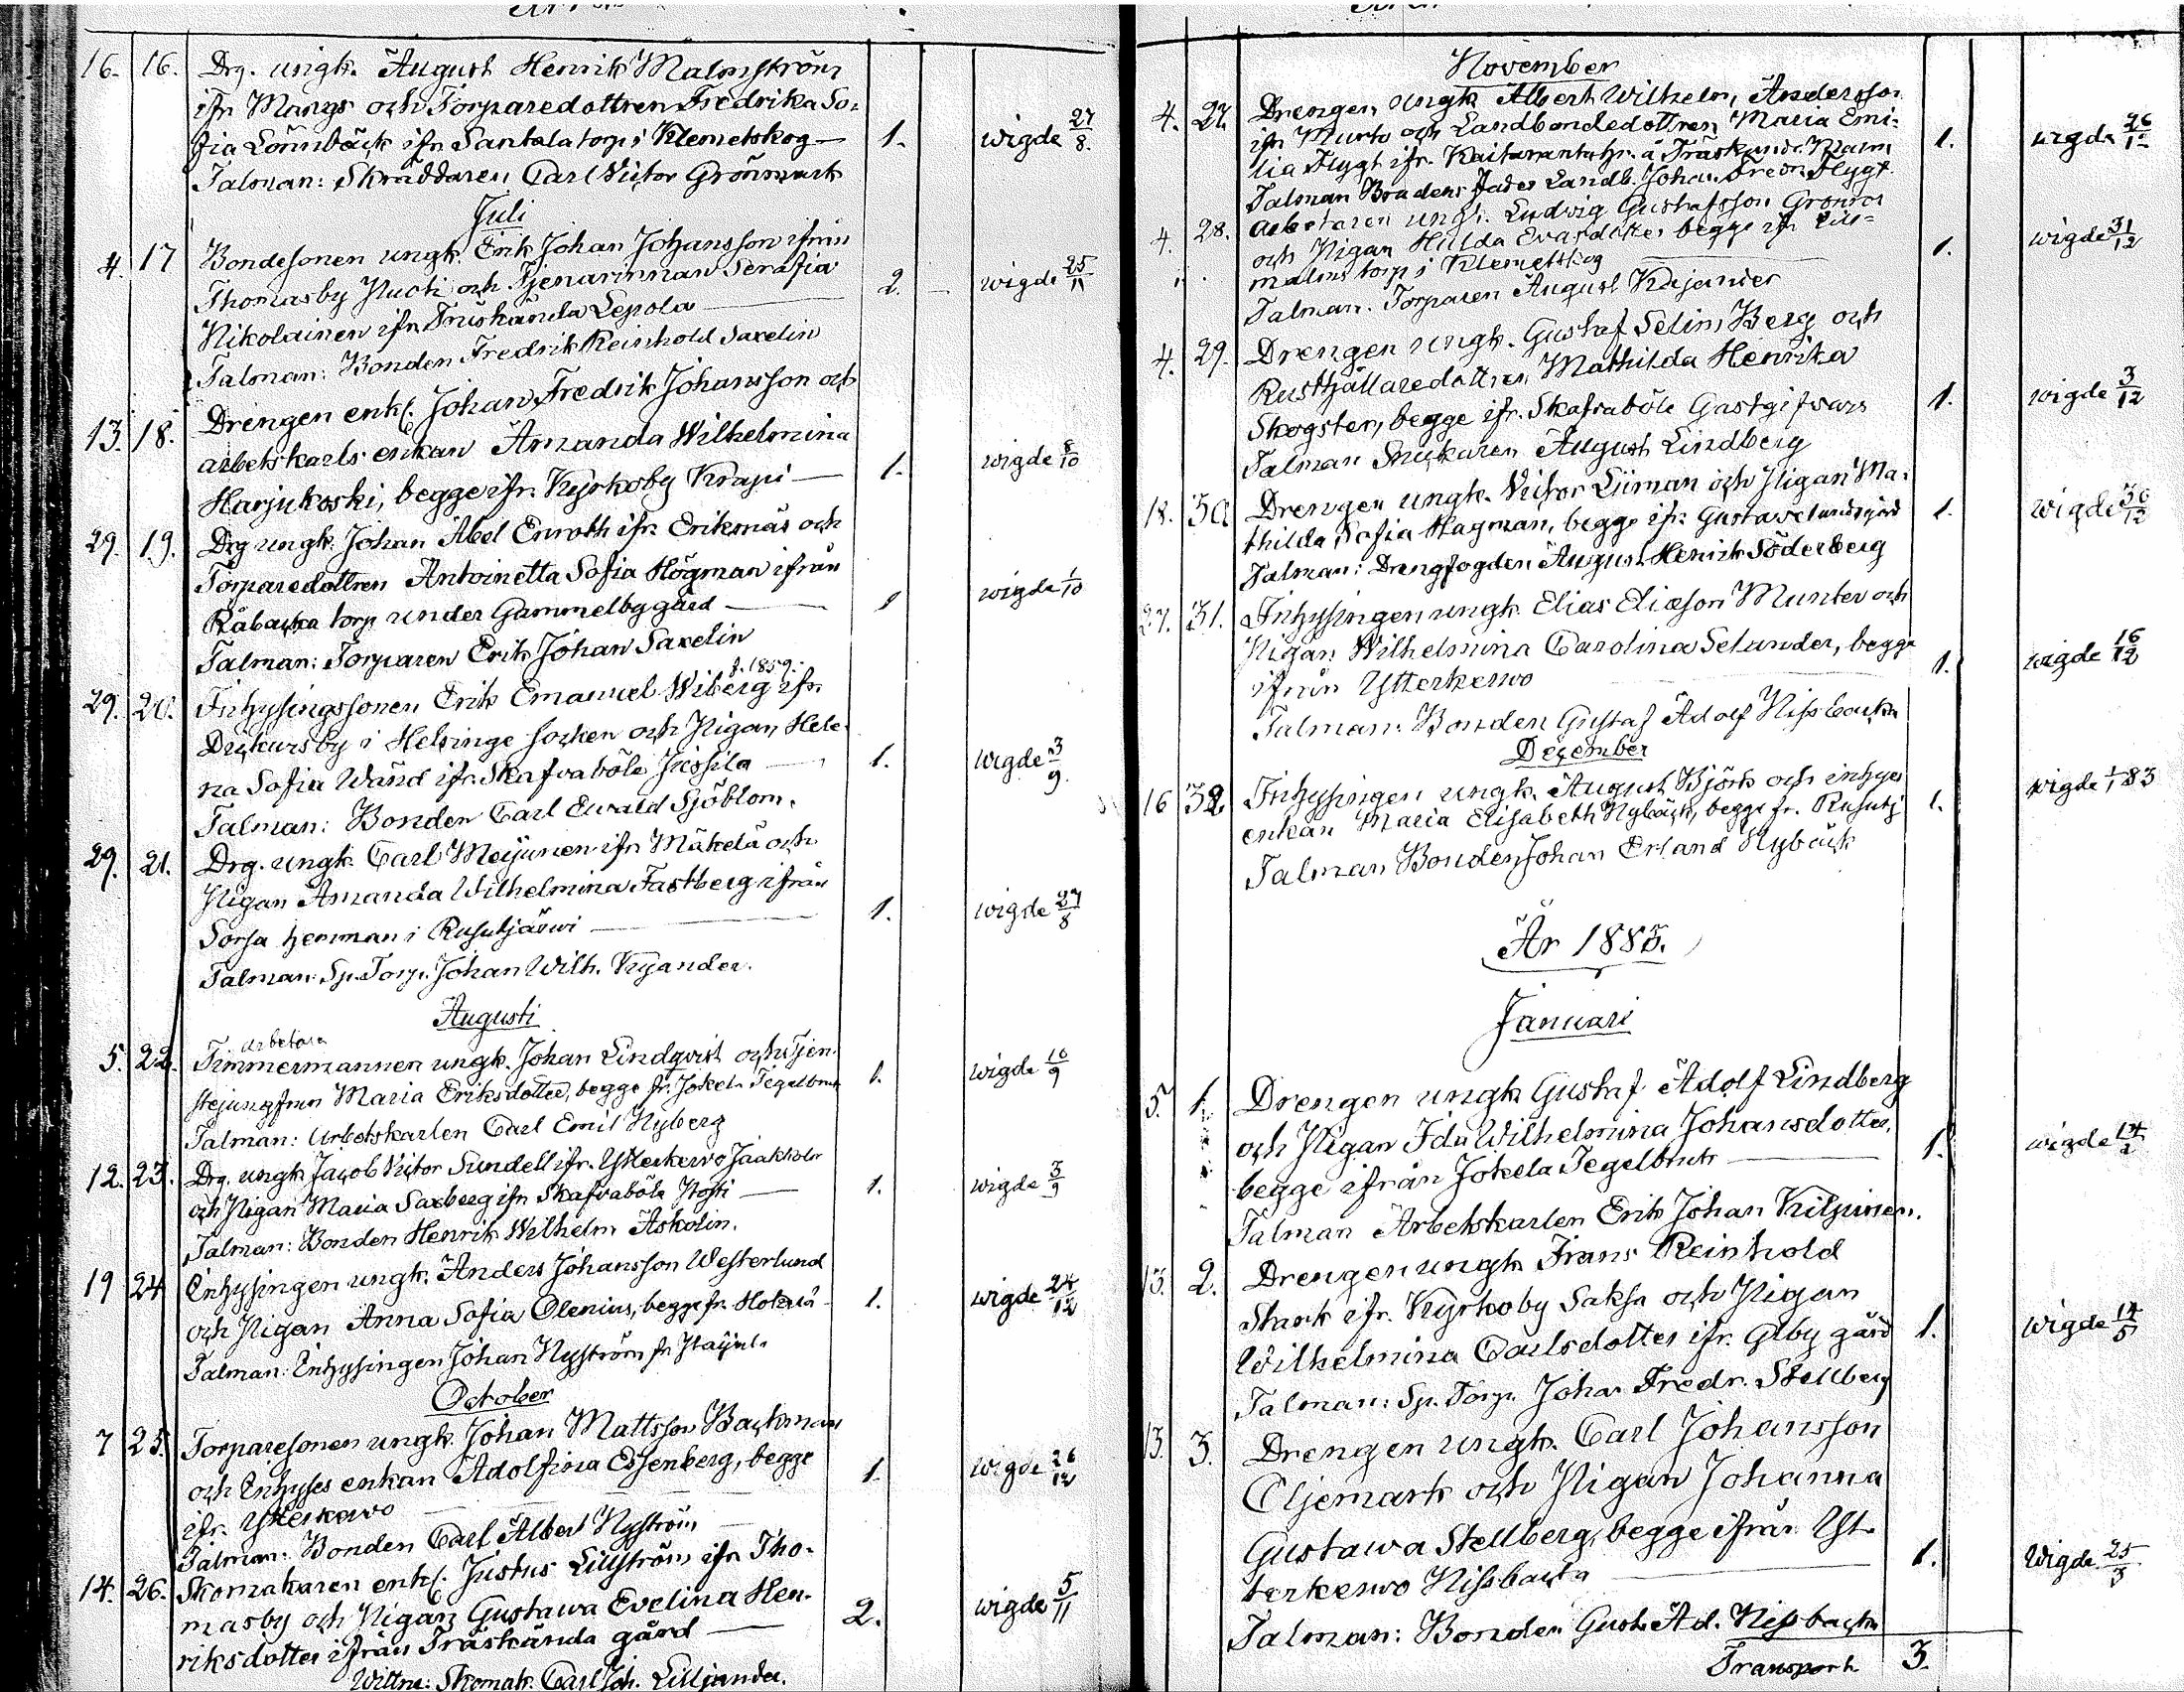 16. 16. Drg. ungk. August Henrik Malmström
ifr Mangs och Torparedottren Fredrika So-
fia Lönnbäck ifr Santala torp i Klemetskog — 1. wigde 27/8.
Talman: Skräddaren Carl Victor Grönmark
Juli
4. 17 Bondesonen ungk. Erik Johan Johansson ifrån
Thomasby Huoti och Tjenarinnan Serafia 2. wigde 25/11
Nikolainen ifr Träskända Lepola
Talman: Bonden Fredrik Reinhold Saxelin
13. 18. Drengen enkl. Johan Fredrik Johansson och
arbetskarls enkan Amanda Wilhelmina
Harjukoski, begge ifr. Kyrkoby Krapi — 1. wigde 8/10
29. 19. Drg ungk. Johan Abel Enroth ifr. Eriksnäs och
Torparedottren Antoinetta Sofia Högman ifrån
Råbacka torp under Gammelby gård — 1 wigde 1/10
Talman: Torparen Erik Johan Saxelin
f. 1859.
29. 20. Inhysingssonen Erik Emanuel Wiberg ifr.
Dickursby i Helsinge socken och Pigan Hele-
na Sofia Wänd ifr. Skafvaböle Jussila — 1. wigde 3/9.
Talman: Bonden Carl Ewald Sjöblom.
29. 21. Drg. ungk. Carl Meijunen ifr Mäkelä och
Pigan Amanda Wilhelmina Fastberg ifrån
Sorsa hemman i Rusutjärwi — 1. wigde 27/8
Talman: Sp. Torp. Johan Wilh. Kyander.
Augusti
arbetare
5. 22. Timmermannen ungk. Johan Lindqvist och Tjen-
stejungfrun Maria Eriksdotter, begge fr. Jokela Tegelbruk 1. wigde 10/9
Talman: Arbetskarlen Carl Emil Nyberg
12. 23. Drg. ungk Jacob Victor Sundell ifr. Ytterkerwo Jaakkola
och Pigan Maria Saxberg ifr Skafvaböle Hosti — 1. wigde 3/9
Talman: Bonden Henrik Wilhelm Askolin.
19 24 Inhysingen ungk. Anders Johansson Westerlund
och Pigan Anna Sofia Olenius, begge fr. 1. wigde 24/12
Talman: Inhysingen Johan Nyström fr
October
7 25. Torparesonen ungk. Johan Mattsson Backman
och Inhyses enkan Adolfina Essenberg, begge 1. wigde 26/12
ifr. Ytterkerwo
Talman: Bonden Carl Albert Nyström
14. 26. Skomakaren enkl. Justus Lillström ifr Tho-
masby och Pigan Gustawa Evelina Hen- 2. wigde 5/11
riksdotter ifrån Träskända gård —
Wittne: Skomak. Carl Joh. Liljander.
November
4. 27. Drengen ungk Albert Wilhelm Andersson
ifr Murto och Landbondedottren Maria Emi- 1. wigde 26/12
lia Flygt ifr. å Träskända
Talman Brudens fader Landb. Johan Fredr. Flygt.
4. 28. Arbetaren ungk. Ludwig Gustafsson Grönros
och Pigan Hulda Evasdotter begge ifr Lill- 1. wigde 31/12
malms torp i Klemetskog
Talman. Torparen August Kajander
4. 29. Drengen ungk. Gustaf Selim Berg och
Rusthållaredottren Mathilda Henrika
Skogster, begge ifr. Skafvaböle Gästgifvars 1. wigde 3/12
Talman Snickaren August Lindberg
18. 30. Drengen ungk. Victor Liiman och Pigan Ma- 1. wigde 30/12
thilda Sofia Hagman, begge ifr. Gustavelunds gård
Talman: Drengfogden August Henrik Söderberg
27. 31. Inhysingen ungk. Elias Eliasson Munter och
Pigan Wilhelmina Carolina Selander, begge 1. wigde 16/12
ifrån Ytterkerwo
Talman: Bonden Gustaf Adolf Nissbacka
December
16 32. Inhysingen ungk. August Björk och inhyses
enkan Maria Elisabeth Nybäck, begge fr. Rusutj 1. wigde 1/1 83
Talman Bonden Johan Erland Nybäck
År 1883.
Januari
5. 1. Drengen ungk Gustaf Adolf Lindberg
och Pigan Ida Wilhelmina Johansdotter, 1. wigde 14/2
begge ifrån Jokela Tegelbruk —
Talman Arbetskarlen Erik Johan Kilpinen.
13. 2. Drengen ungk Frans Reinhold
Stark ifr. Kyrkoby Saksa och Pigan
Wilhelmina Carlsdotter ifr. Alby gård 1. wigde 14/5
Talman: Sp. Torp. Johan Fredr. Stellberg
13. 3. Drengen ungk. Carl Johansson
Oljemark och Pigan Johanna
Gustawa Stellberg, begge ifrån Yt-
terkerwo Nissbacka — 1. wigde 25/3
Talman: Bonden Gust. Ad. Nissbacka
Transport 3.